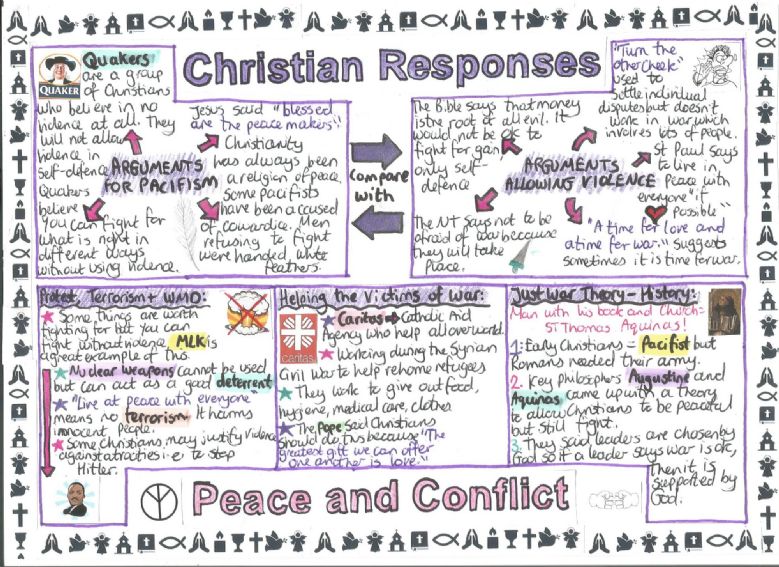 Christian Responses
Quakers
are a group
of Christians
QUAKER
who believe in no
violence at all. They
will not allow
violence in
self-defence
Quakers
believe
you can fight for
what is right in
different ways
without using violence.
ARGUMENTS
FOR PACIFISM
Jesus said "blessed
are the peacemakers"
Christianity
has always been
a religion of peace.
Some pacifists
have been accused
of cowardice. Men
refusing to fight
were handed white
feathers.
compare
with
The Bible says that money
is the root of all evil. It
would not be ok to
fight for gain
only self-
defence
The NT says not to be
afraid of war because
they will take
place.
ARGUMENTS
ALLOWING VIOLENCE
"Turn the
other cheek"
used to
settle individual
disputes but doesn't
work in war which
involves lots of people.
St Paul says
to live in
Peace with
everyone "if
possible"
"A time for love and
a time for war." suggests
sometimes it is time for war.
Protest, Terrorism + WMD:
Some things are worth
fighting for but you can
fight without violence. MLK is
a great example of this.
Nuclear weapons cannot be used
but can act as a good deterrent
"Live at peace with everyone"
means no terrorism. It harms
innocent people.
Some Christians may justify violence
against atrocities i.e to stop
Hitler.
Helping the Victims of War:
Caritas
Caritas → Catholic Aid
Agency who help all over world.
Working during the Syrian
Civil War to help rehome refugees
They work to give out food,
hygiene, medical care, clothes
The Pope said Christians
should do this because "The
greatest gift we can offer
one another is love."
Just War Theory - History:
Man with his book and Church =
ST Thomas Aquinas!
1: Early Christians = Pacifist but
Romans needed their army.
2. Key philosophers Augustine and
Aquinas came up with a theory
to allow Christians to be peaceful
but still fight.
3. They said leaders are chosen by
God so if a leader says war is ok,
then it is
supported by
God.
Peace and Conflict